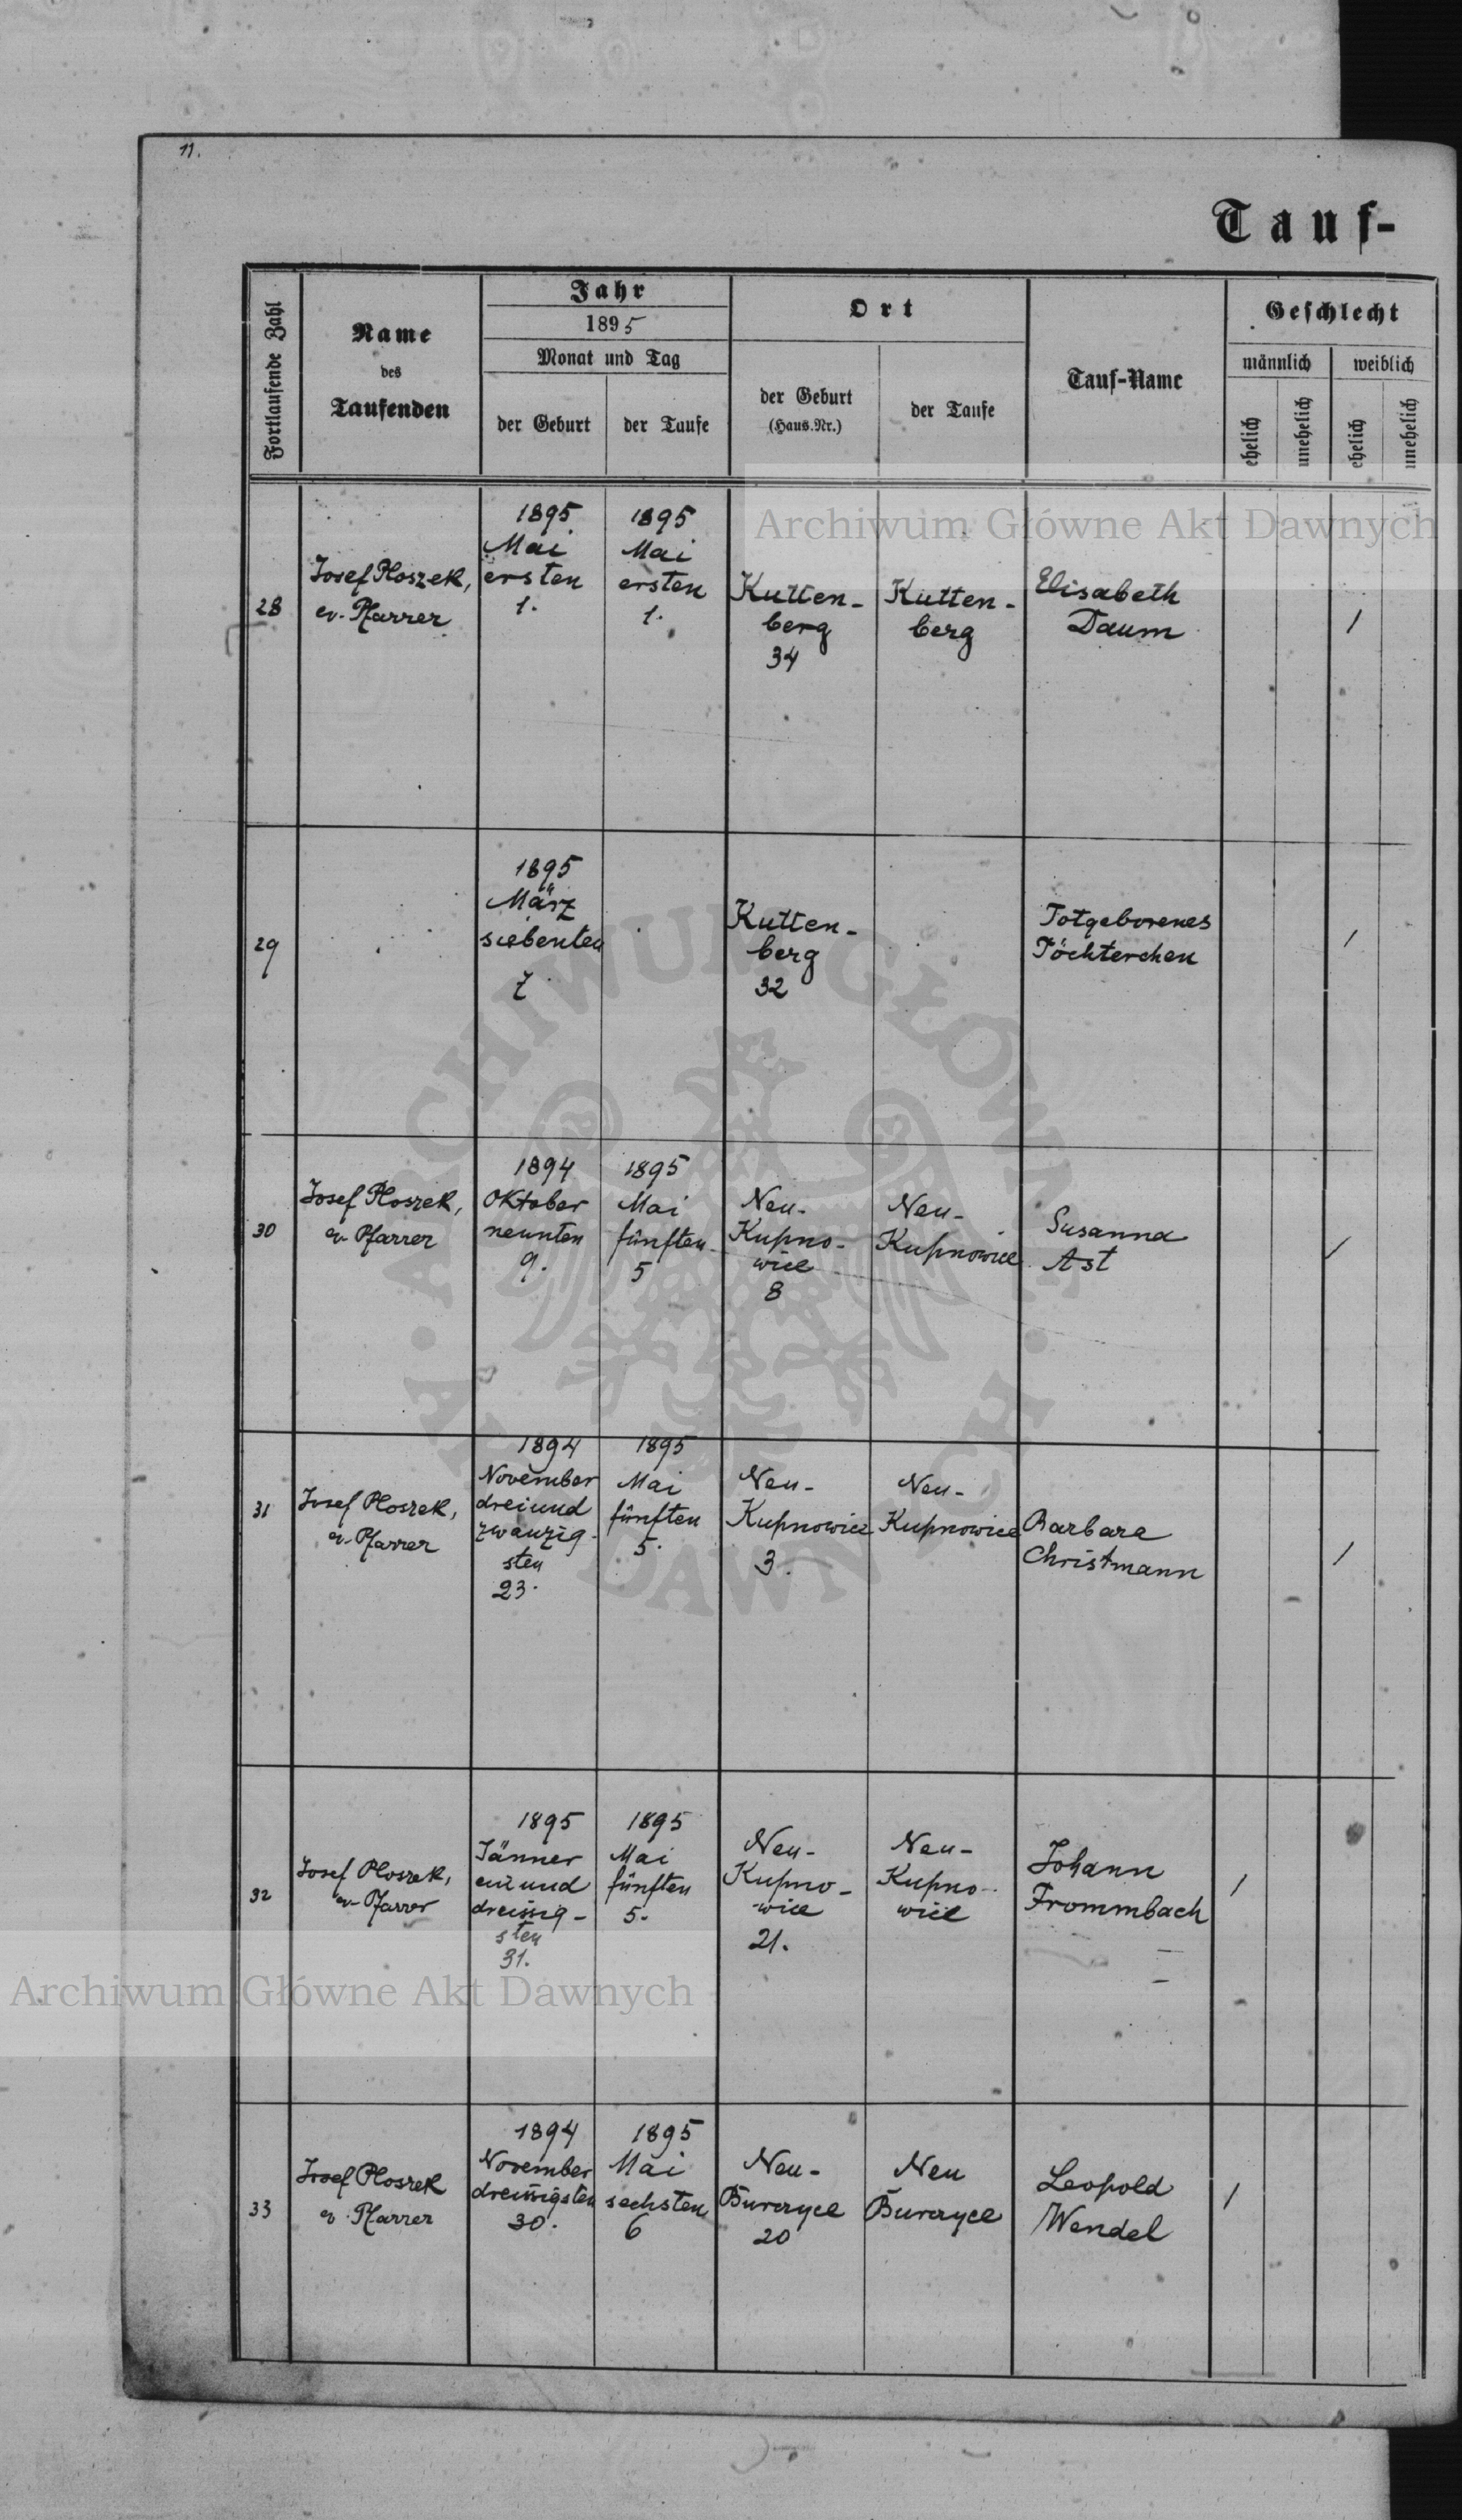 11.
Tauf-
Fortlaufende Zahl
Name
des
Taufenden
Jahr
1895
Monat und Tag
der Geburt
der Taufe
Ort
der Geburt
(Haus.Nr.)
der Taufe
Tauf-Name
Geschlecht
männlich
weiblich
ehelich
unehelich
ehelich
unehelich
28
Josef Ploszek,
ev. Pfarrer
1895
Mai
ersten
1.
1895
Mai
ersten
1.
Kutten-
berg
34
Kutten-
berg
Elisabeth
Daum
/
29
1895
März
siebenten
7.
Kutten-
berg
32
Totgeborenes
Töchterchen
/
30
Josef Ploszek,
ev. Pfarrer
1894
Oktober
neunten
9.
1895
Mai
fünften
5
Neu-
Kupno-
wice
8
Neu-
Kupnowice
Susanna
Ast
/
31
Josef Ploszek,
ev. Pfarrer
1894
November
dreiund
zwanzig-
sten
23.
1895
Mai
fünften
5.
Neu-
Kupnowice
3.
Neu-
Kupnowice
Barbara
Christmann
/
32
Josef Ploszek,
ev. Pfarrer
1895
Jänner
einund
dreissig-
sten
31.
1895
Mai
fünften
5.
Neu-
Kupno-
wice
21.
Neu-
Kupno-
wice
Johann
Frommbach
/
33
Josef Ploszek
ev. Pfarrer
1894
November
dreissigsten
30.
1895
Mai
sechsten
6
Neu-
Burczyce
20
Neu
Burczyce
Leopold
Wendel
/
Archiwum Główne Akt Dawnych
ARCHIWUM GŁÓWNE AKT DAWNYCH
Archiwum Główne Akt Dawnych